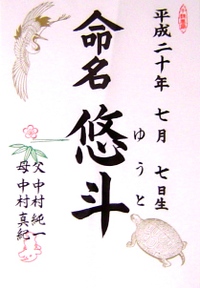 平成二十年 七月 七日生
命名 悠斗
ゆうと
父 中村純一
母 中村真紀